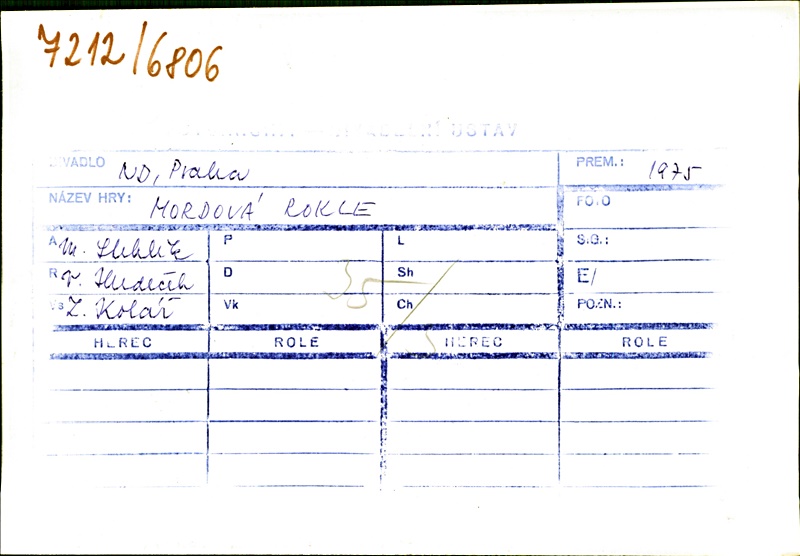 7212/6806
DIVADELNÍ ÚSTAV
DIVADLO ND, Praha PREM.: 1975
NÁZEV HRY: MORDOVÁ ROKLE FOTO
A M. Stehlík P L S.G.:
R V. Hudeček D Sh E/
Vs Z. Kolář Vk Ch POZN.:
35/
HEREC ROLE HEREC ROLE